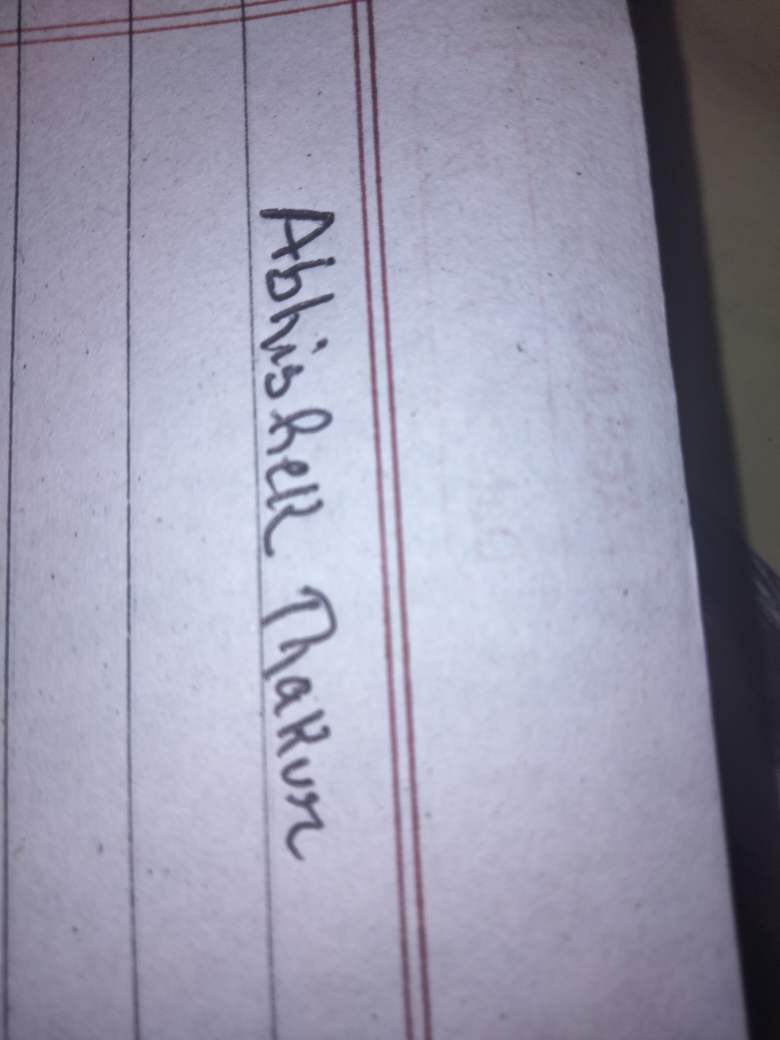 Abhishek Thakur